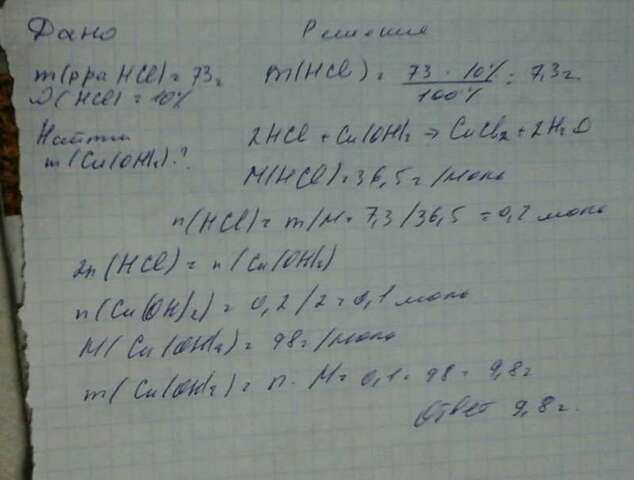 Дано
Решение
m(р-ра HCl) = 73г
ω(HCl) = 10%
m(HCl) = 73 · 10% / 100% = 7,3г
Найти
m(Cu(OH)2)?
2HCl + Cu(OH)2 → CuCl2 + 2H2O
M(HCl) = 36,5 г/моль
n(HCl) = m/M = 7,3/36,5 = 0,2 моль
2n(HCl) = n(Cu(OH)2)
n(Cu(OH)2) = 0,2/2 = 0,1 моль
M(Cu(OH)2) = 98г/моль
m(Cu(OH)2) = n · M = 0,1 · 98 = 9,8г
Ответ 9,8г.